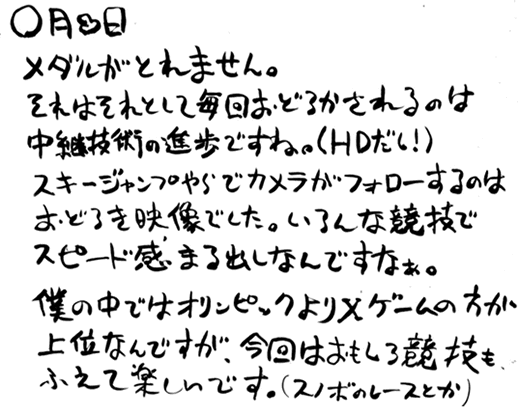 ○月8日
メダルがとれません。
それはそれとして毎回おどろかされるのは
中継技術の進歩ですね。(HDだし!)
スキージャンプやらでカメラがフォローするのは
おどろき映像でした。いろんな競技で
スピード感まる出しなんですなぁ。
僕の中ではオリンピックよりXゲームの方が
上位なんですが、今回はおもしろ競技も
ふえて楽しいです。(スノボのレースとか)